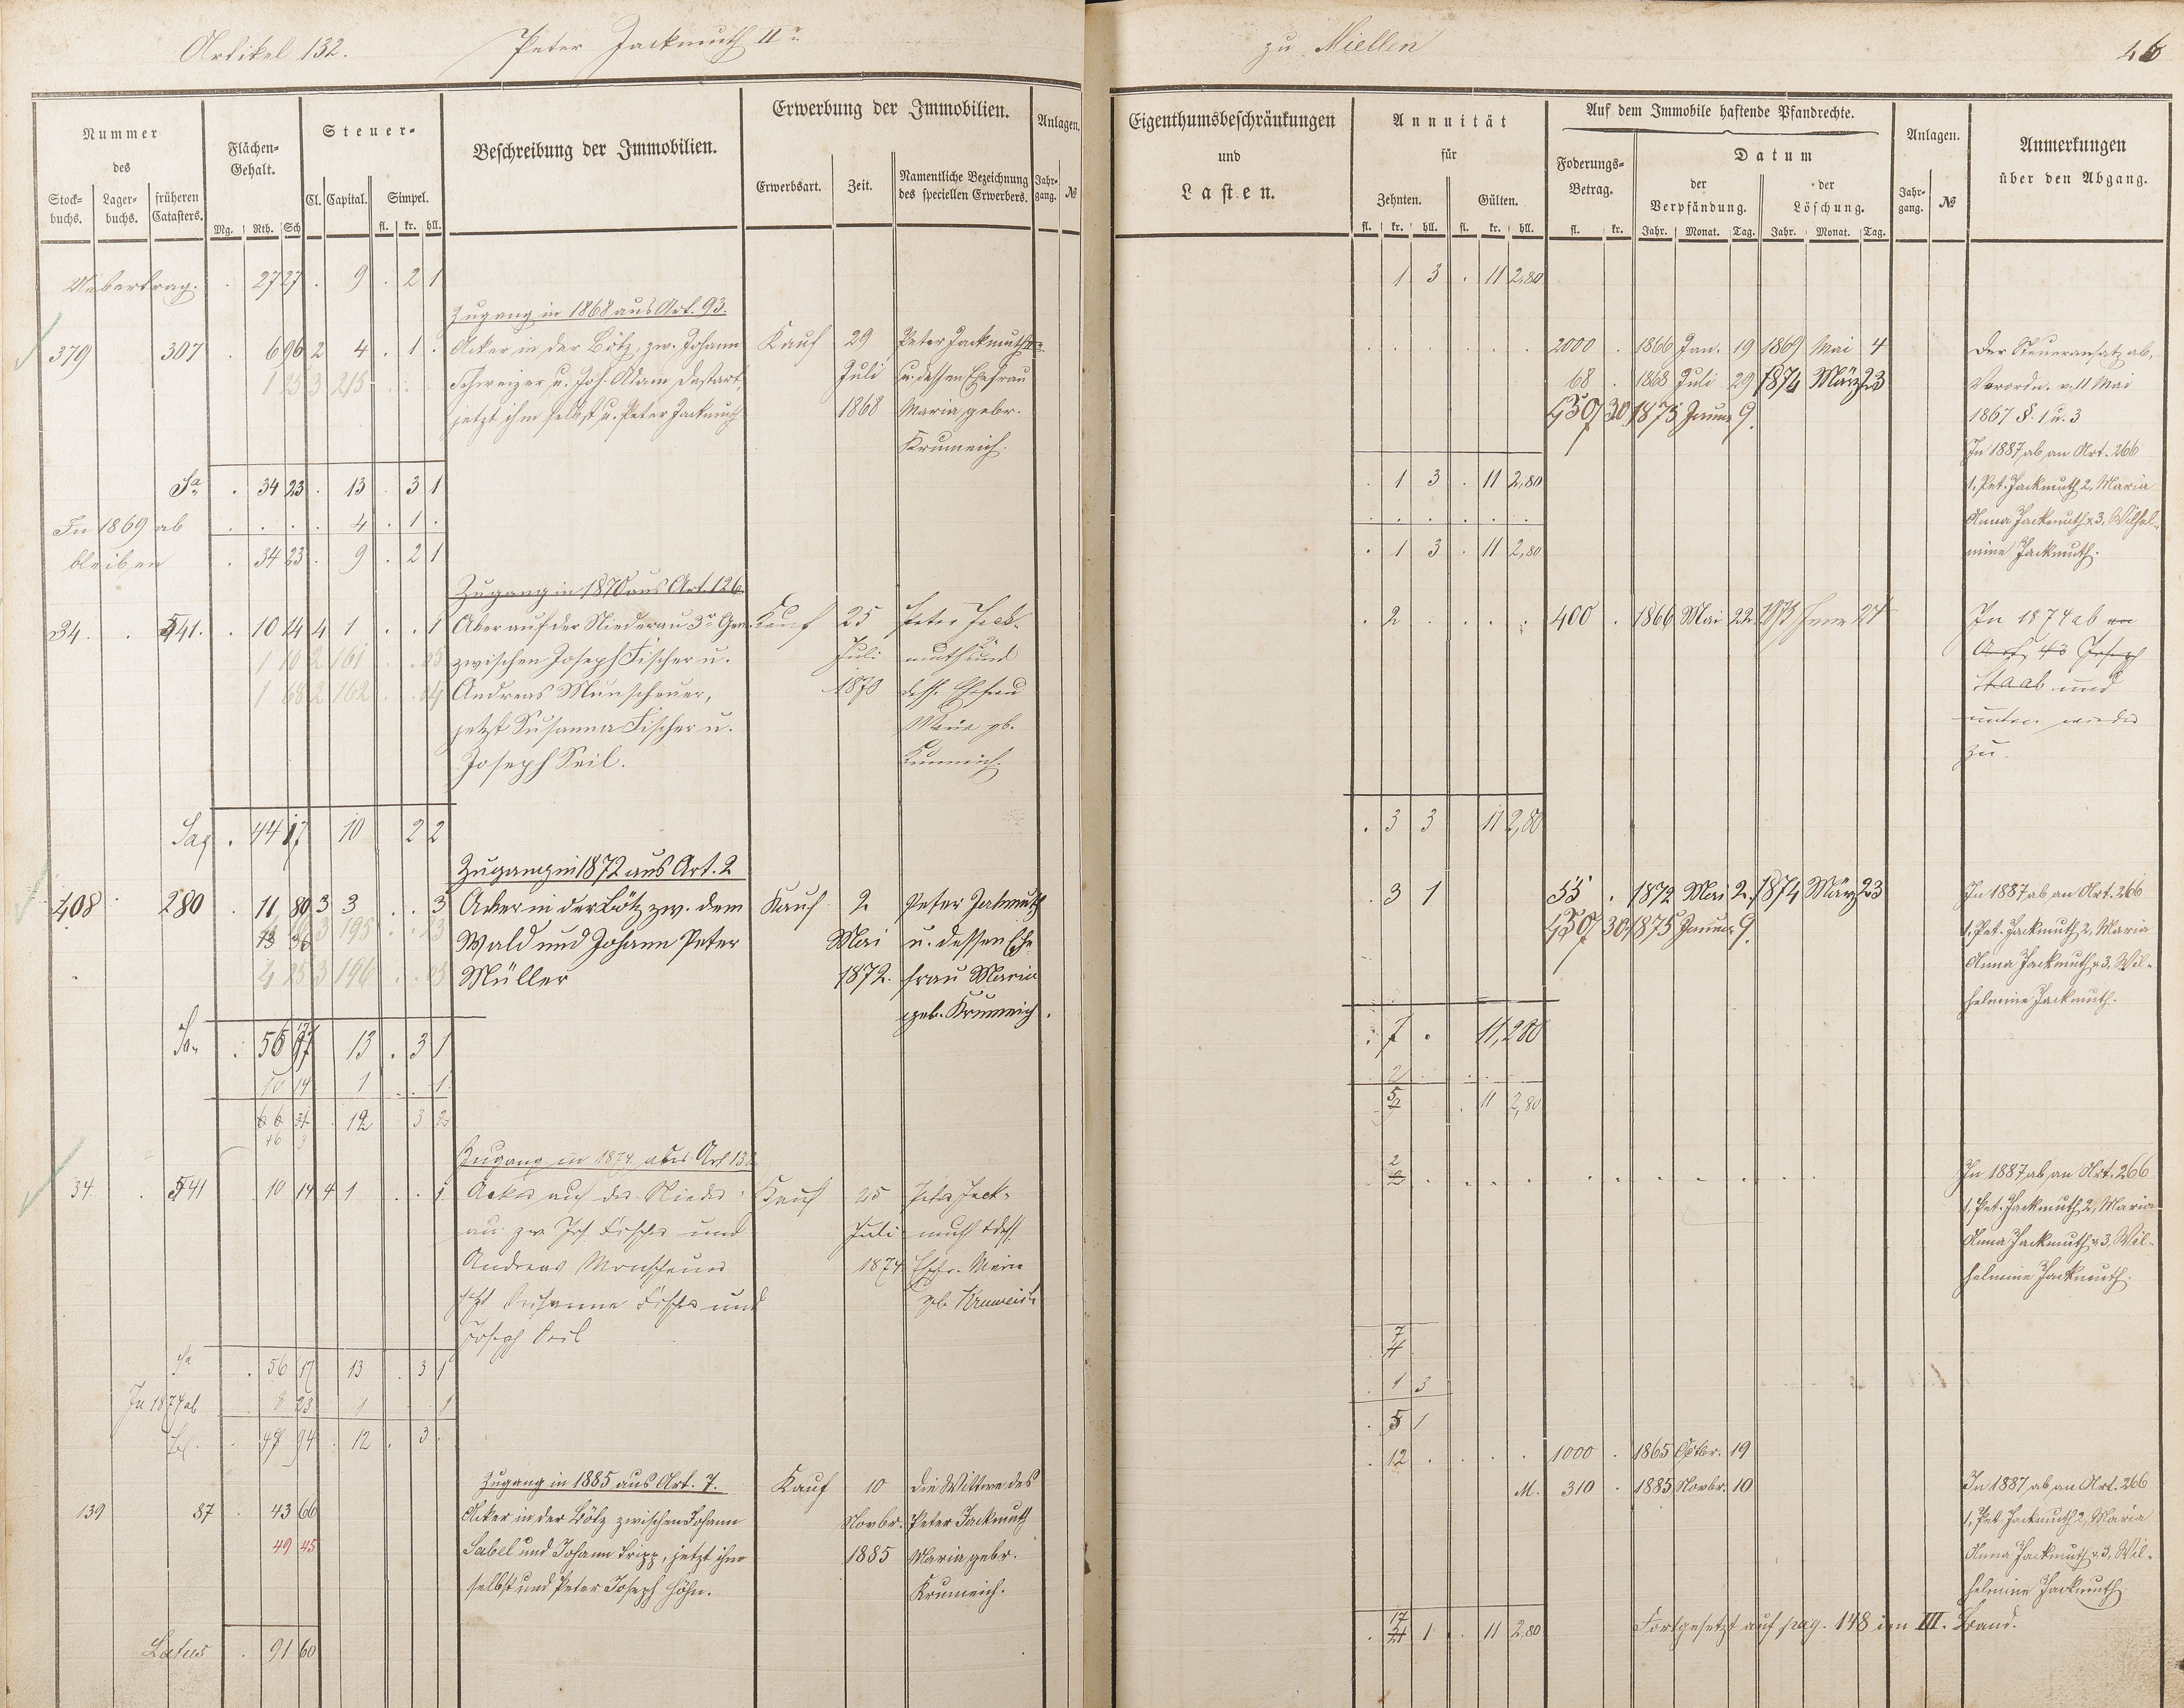 Artikel 132. Peter Jackmuth IIr
zu Miellen 46
Nummer des
Stock-buchs. Lager-buchs. früheren Catasters.
Flächen-Gehalt.
Mg. Rth. Sch
Steuer-
Cl. Capital. Simpel.
fl. kr. hll.
Beschreibung der Immobilien.
Erwerbung der Immobilien.
Erwerbsart. Zeit. Namentliche Bezeichnung des speciellen Erwerbers.
Anlagen.
Jahr-gang. №
Eigenthumsbeschränkungen
und
Lasten.
Annuität
für
Zehnten. Gülten.
fl. kr. hll. fl. kr. hll.
Auf dem Immobile haftende Pfandrechte.
Foderungs-Betrag.
fl. kr.
Datum
der Verpfändung. der Löschung.
Jahr. Monat. Tag. Jahr. Monat. Tag.
Anlagen.
Jahr-gang. №
Anmerkungen
über den Abgang.
Uebertrag. . 27 27 . 9 . 2 1
1 3 . 11 2,80
Zugang in 1868 aus Art. 93.
379 307 . 6 96 2 4 . 1 . Acker in der Bötz, zw. Johann Kauf 29 Peter Jackmuth
1 25 3 215 Schweizer u. Joh. Adam Juli u. dessen Ehefrau
jetzt ihm selbst u. Peter Jackmuth 1868 Maria gebr.
Krumeich.
2000 . 1866 Jan. 19 1869 Mai 4
68 . 1868 Juli 29 1874 März 23
4507 30 1875 Januar 9.
Der Steueransatz ab,
Verordn. v. 11 Mai
1867 §. 1 u. 3
In 1887 ab an Art. 266
1, Pet. Jackmuth 2, Maria
Anna Jackmuth u. 3, Wilhel-
mine Jackmuth.
Sa . 34 23 . 13 . 3 1
. 1 3 . 11 2,80
In 1869 ab . . . . 4 . 1 .
bleiben . 34 23 . 9 . 2 1
. 1 3 . 11 2,80
Zugang in 1870 aus Art. 126.
34. . 541. . 10 14 4 1 . . 1 Acker auf der Niederau 3r Gew. Kauf 25 Peter Jack-
1 10 2 161 zwischen Joseph Fischer u. Juli muth und
1 68 2 162 Andreas Munscheuer, 1870 dess. Ehefrau
jetzt Susanna Fischer u. Maria gb.
Joseph Seil. Krumeich.
. 2 . . . . 400 . 1866 Mai 22
In 1874 ab an
Art. 43 Joseph
Staab und
unten wieder
zu.
44 17 10 2 2
. 3 3 11 2,80
Zugang in 1872 aus Art. 2
408 280 . 11 80 3 3 . . 3 Acker in der Bötz zw. dem Kauf 2 Peter Jakmuth
13 36 3 195 Wald und Johann Peter Mai u. dessen Ehe
4 25 3 196 Müller 1872. frau Maria
geb. Krumeich.
. 3 1 55 . 1872 Mai 2. 1874 März 23
4507 30 1875 Januar 9.
In 1887 ab an Art. 266
1. Pet. Jackmuth 2, Maria
Anna Jackmuth u. 3, Wil-
helmine Jackmuth.
Sa. . 56 17 13 . 3 1
. 7 . 11,280
10 14 1 . . 1
12 3
. 11 2,80
Zugang in 1874 aus Art 132
34 . 541 10 14 4 1 . . 1 Acker auf der Nieder- Kauf 25 Peter Jack-
au zw Jos. Fischer und Juli muth & dess.
Andreas Monscheuer 1874 Ehefr. Maria
jetzt Susanna Fischer und gb Krumeich
Joseph Seil
In 1887 ab an Art. 266
1, Pet. Jackmuth 2, Maria
Anna Jackmuth u. 3, Wil-
helmine Jackmuth.
Sa . 56 17 13 . 3 1
In 1874 ab 8 23 1 1
. 1 3
12 . 3
. 5 1
. 12 . . . . 1000 . 1865 Octbr. 19
Zugang in 1885 aus Art. 7. Kauf 10 die Wittwe des
139 87 . 43 66 Acker in der Bötz zwischen Johann Novbr. Peter Jackmuth
49 45 Sabel und Johann Tripp, jetzt ihm 1885 Maria gebr.
selbst und Peter Joseph Höhn. Krumeich.
M. 310 . 1885 Novbr. 10
In 1887 ab an Art. 266
1, Pet. Jackmuth 2, Maria
Anna Jackmuth u. 3, Wil-
helmine Jackmuth
Latus . 91 60
17 1 . 11 2,80 Fortgesetzt auf pag. 148 im III. Band.